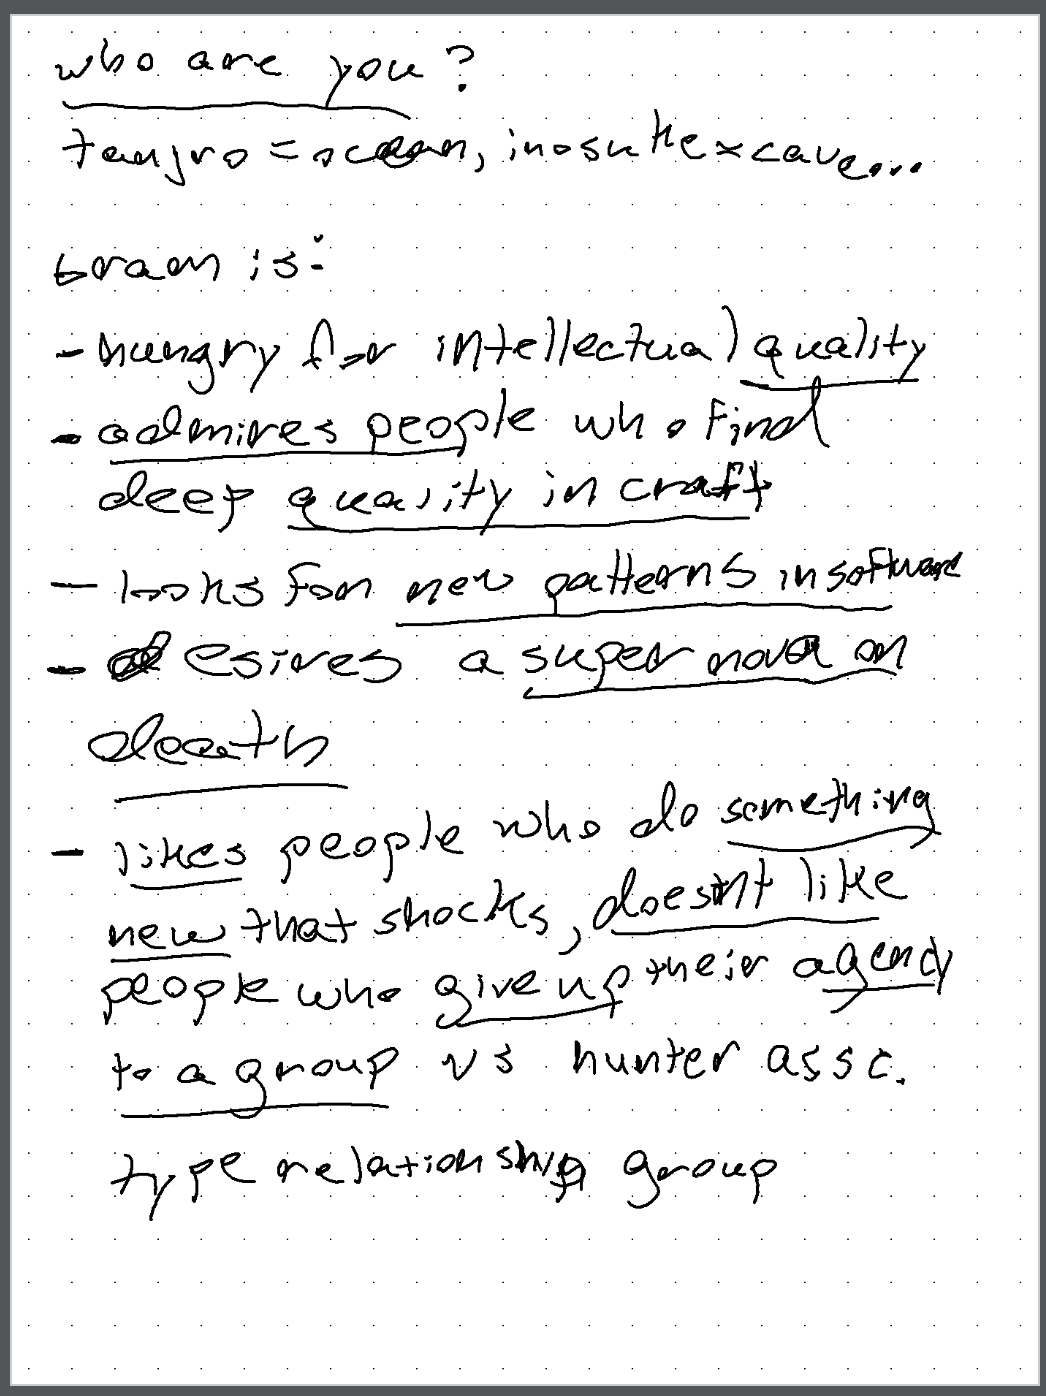 who are you?
tanjro = ocean, inosuke = cave...
is:
- hungry for intellectual quality
- admires people who find
deep quality in craft
- looks for new patterns in software
- desires a supernova on
death
- likes people who do something
new that shocks, doesn't like
people who give up their agency
to a group vs hunter assc.
type relationship group